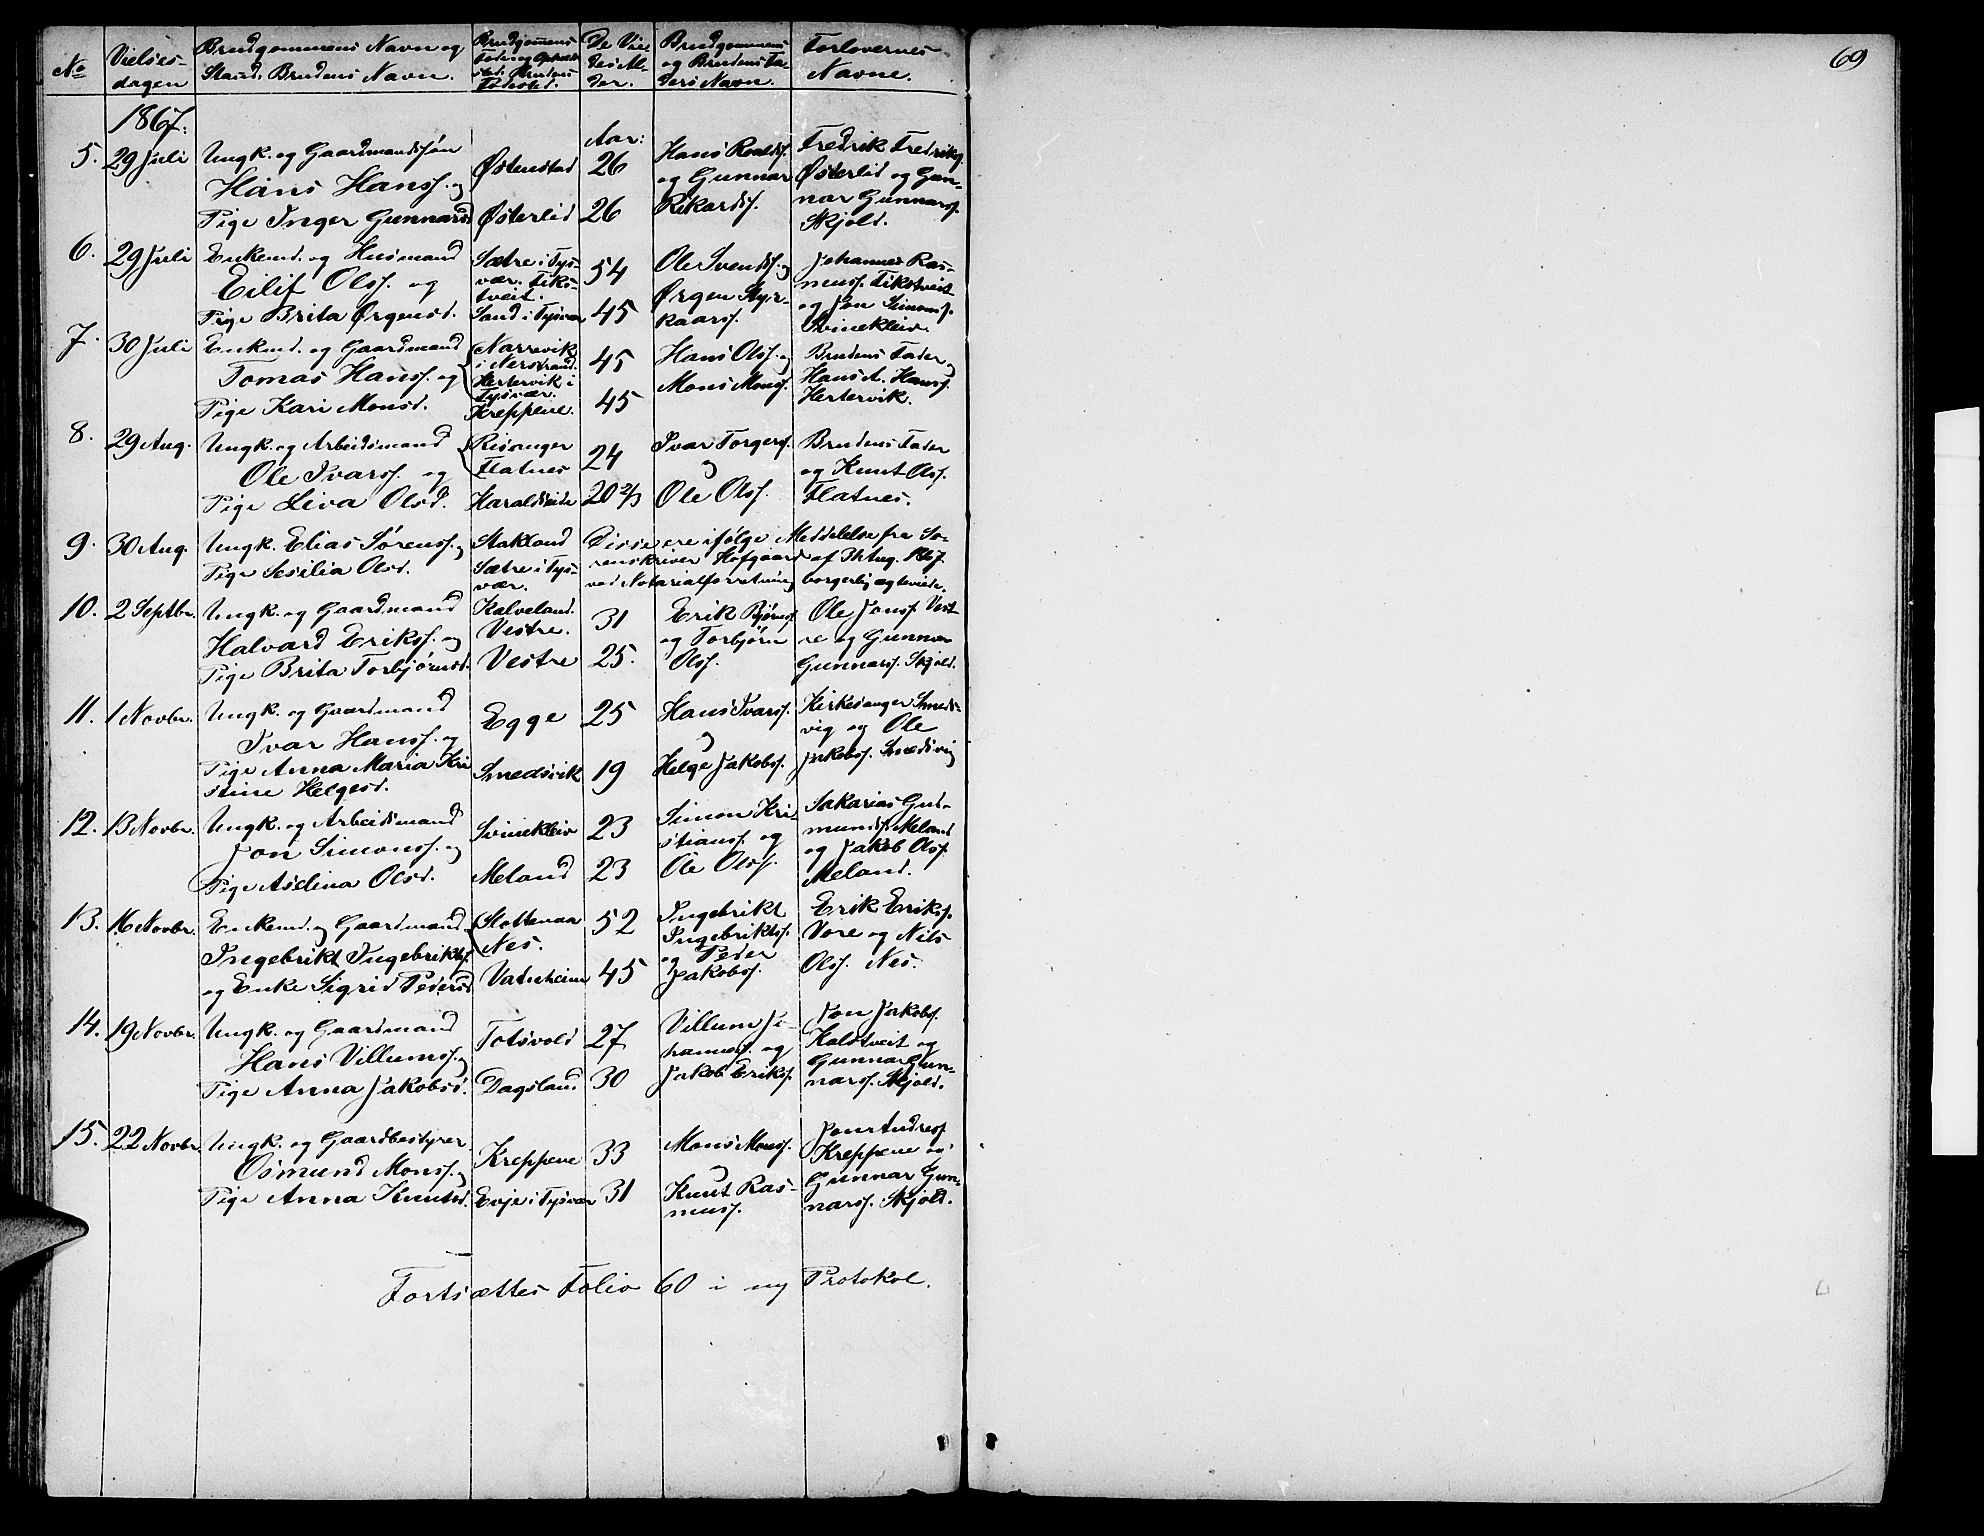 69
No
Vielses-
dagen
Brudgommens Navn og
Stand. Brudens Navn.
Brudgommens
Føde og Opholds
sted. Brudens
Fødested.
De Vie-
des Al-
der.
Brudgommens
og Brudens Fa-
ders Navn.
Forlovernes
Navne.
1867.
Aar:
5. 29 Juli
Ungk. og Gaardmandssøn
Hans Hanss. og
Pige Inger Gunnarsd
Østenstad
Østerlid
26
26
Hans Roaldss.
og Gunnar
Rikardss.
Fredrik Fredrikss.
Østerlid og Gun-
nar Gunnarss.
Skjold.
6. 29 Juli
Enkemd. og Husmand
Eilif Olss. og
Pige Brita Ørgensd.
Sætre i Tys-
vær. Fiks-
tveit.
Sand i Tysvær
54
45
Ole Svendss. og
Ørgen Styr-
kaarss.
Johannes Ras-
muss. Fikstveit
og Jon Simonss.
Svinekleiv
7. 30 Juli
Enkemd. og Gaardmand
Tomas Hanss. og
Pige Kari Monsd.
Narrevik
i Nerstrand.
Hertervik i
Tysvær.
Kreppene.
45
45
Hans Olss. og
Mons Monss.
Brudens Fader og
Hans A. Hanss.
Hertervik.
8. 29 Aug.
Ungk. og Arbeidsmand
Ole Ivarss. og
Pige Liva Olsd.
Risanger
Flatnes
Haraldseide
24
20 2/3
Ivar Torgerss.
og
Ole Olss.
Brudens Fader
og Knut Olss.
Flatnes.
9. 30 Aug.
Ungk. Elias Sørenss. og
Pige Sesilia Olsd.
Stakland
Sætre i Tys-
vær.
Disse ere ifølge Meddelelse fra So-
renskriver Hofgaard af Aug. 1867.
ved Notarialforretning borgerlig ægteviede.
10. 2 Septbr.
Ungk. og Gaardmand
Halvard Erikss. og
Pige Brita Torbjørnsd.
Kalveland.
Vestre.
Vestre
31
25.
Erik Bjørnss.
og Torbjørn
Olss.
Ole Jonss. Vest-
re og Gunnar
Gunnarss. Skjold.
11. 1 Novbr.
Ungk. og Gaardmand
Ivar Hanss. og
Pige Anna Maria Kri
stine Helgesd.
Egge
Smedsvik
25
19
Hans Ivarss.
og
Helge Jakobss.
Kirkesanger Smeds-
vig og Ole
Jakobss. Smedsvig
12. 13 Novbr.
Ungk. og Arbeidsmand
Jon Simonss. og
Pige Aselina Olsd.
Svinekleiv
Meland
23
23
Simon Kri
stianss. og
Ole Olss.
Sakarias Gud-
mundss. Meland
og Jakob Olss.
Meland.
13. 16 Novbr.
Enkemd. og Gaardmand
Ingebrikt Ingebriktss.
og Enke Sigrid Pedersd
Slottenaa
Nes.
Vatnheim
52
45
Ingebrikt
Ingebriktss.
og Peder
Jakobss.
Erik Erikss.
Vore og Nils
Olss. Nes.
14. 19 Novbr.
Ungk. og Gaardmand
Hans Villumss. og
Pige Anna Jakobsd.
Totsvold
Dagsland
27
30
Villum Jo-
hanness. og
Jakob Erikss.
Jon Jakobss.
Haldtveit og
Gunnar Gun-
narss. Skjold.
15. 22 Novbr.
Ungk. og Gaardbestyrer
Osmund Monss. og
Pige Anna Knutsd.
Kreppene
Evje i Tysvær
33
31
Mons Monss.
og
Knut Ras-
muss.
Jon Andreass.
Kreppene og
Gunnar Gun-
narss. Skjold.
Fortsættes Folio 60 i ny Protokol.